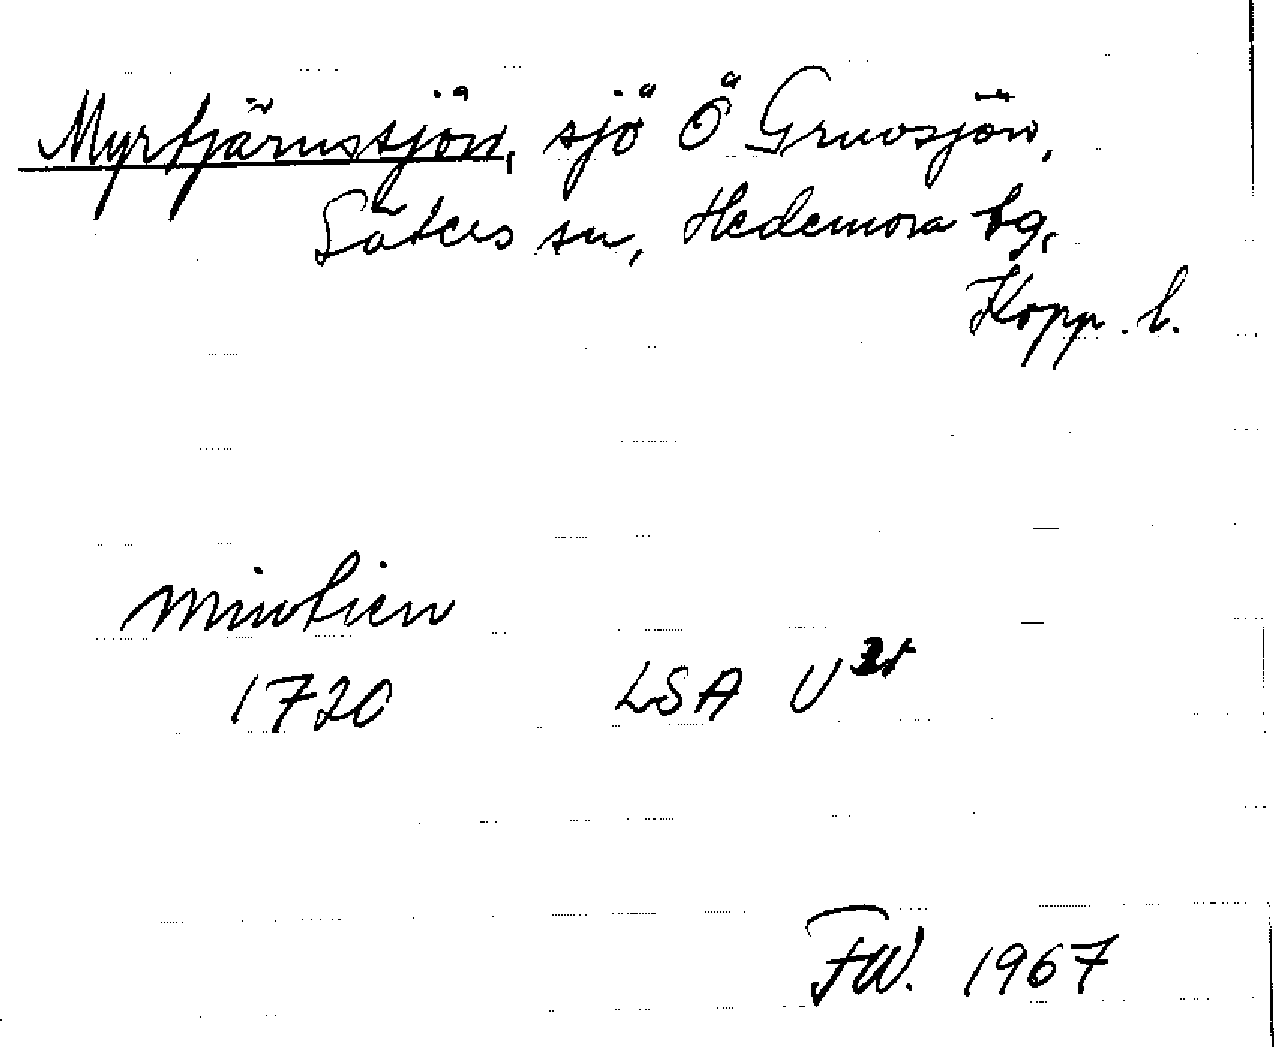 Myrtjärnstjön, sjö Ö Gruvsjön,
Säters sn, Hedemora bg,
Kopp. l.
mintien
1720 LSA U
FW. 1967